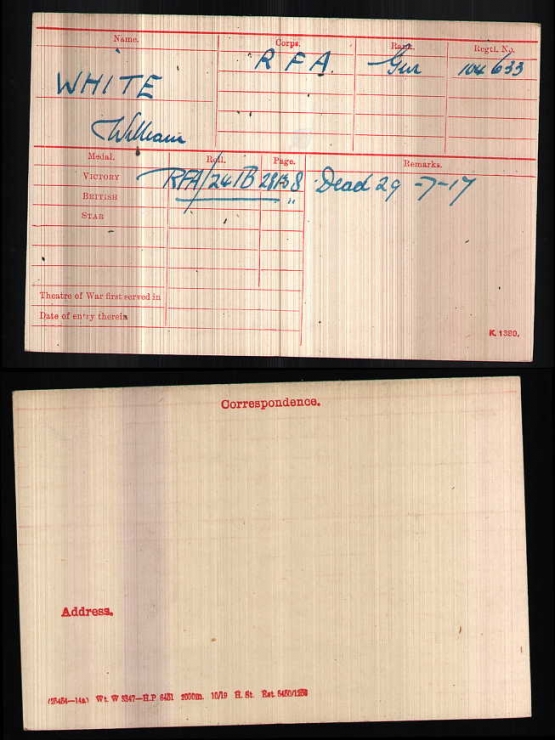 Name. Corps. Rank. Regtl. No.
WHITE R F A. Gnr 104633
William
Medal. Roll. Page. Remarks.
VICTORY RFA/241B 28138 Dead 29-7-17
BRITISH "
STAR
Theatre of War first served in
Date of entry therein
K. 1380.
Correspondence.
Address.
Wt. W 5347—H.P. 10/19 H. St.